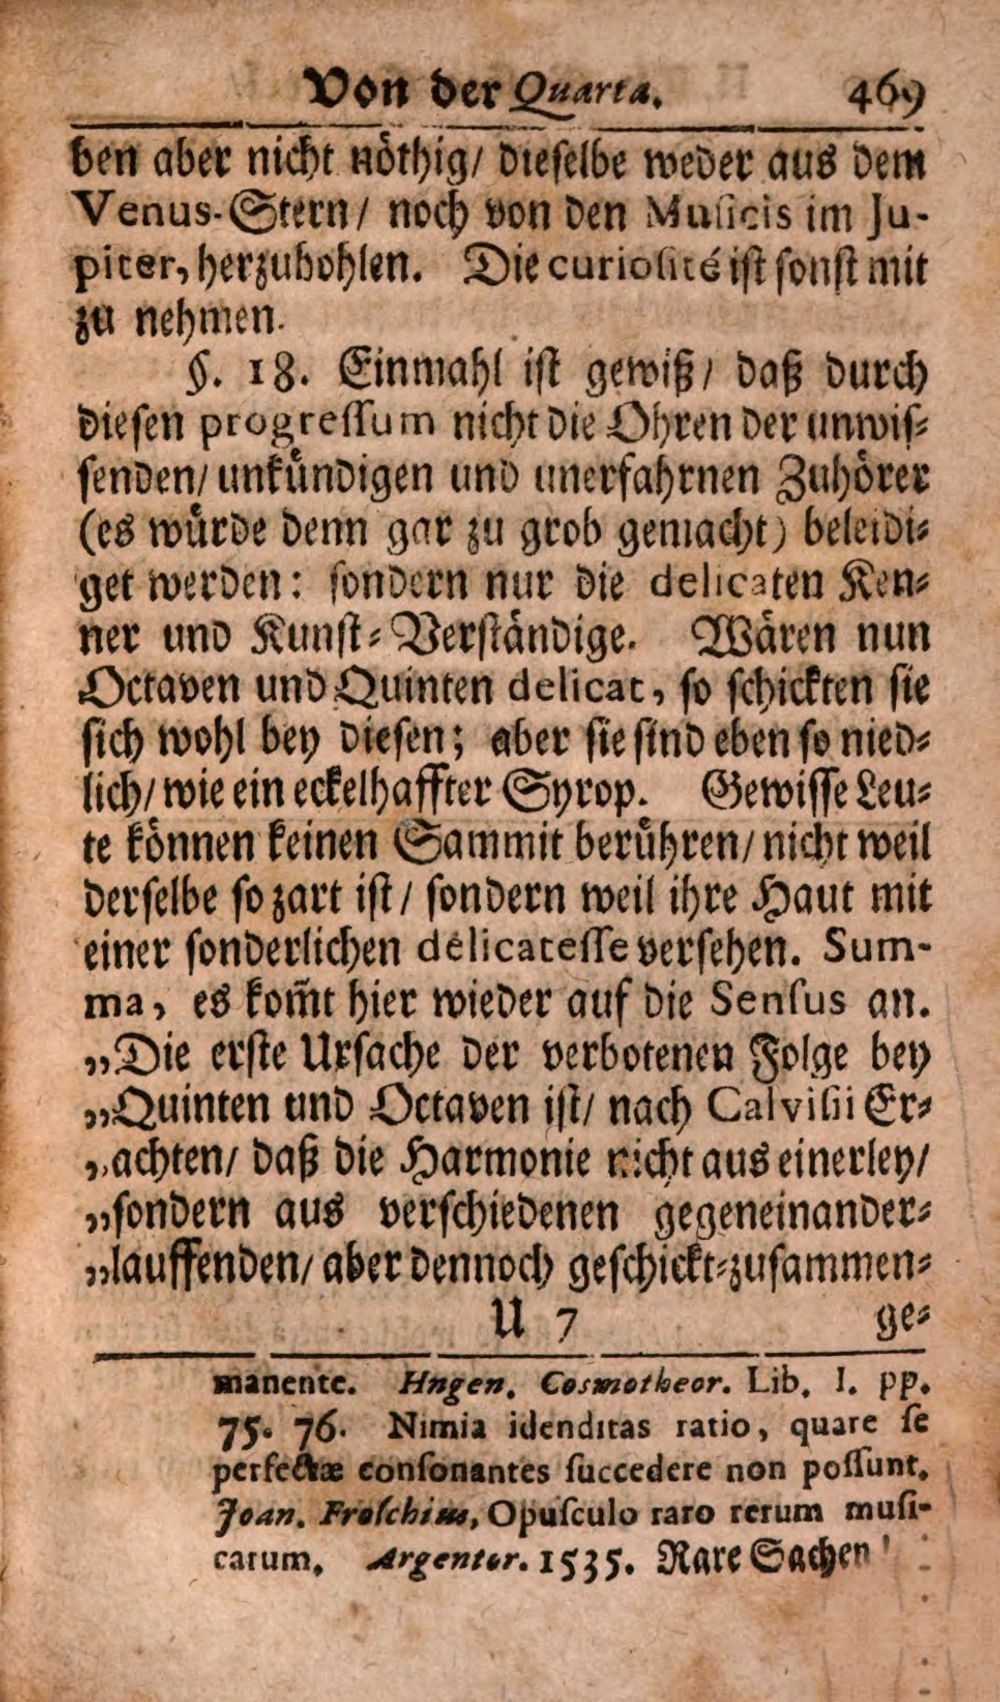 Von der Quarta. 469
ben aber nicht nöthig/ dieselbe weder aus dem
Venus-Stern/ noch von den Musicis im Ju-
piter, herzubohlen. Die curiosité ist sonst mit
zu nehmen.
§. 18. Einmahl ist gewiß/ daß durch
diesen progressum nicht die Ohren der unwis-
senden/ unkündigen und unerfahrnen Zuhörer
(es würde denn gar zu grob gemacht) beleidi-
get werden: sondern nur die delicaten Ken-
ner und Kunst-Verständige. Wären nun
Octaven und Quinten delicat, so schickten sie
sich wohl bey diesen; aber sie sind eben so nied-
lich/ wie ein eckelhaffter Syrop. Gewisse Leu-
te können keinen Sammit berühren/ nicht weil
derselbe so zart ist/ sondern weil ihre Haut mit
einer sonderlichen délicatesse versehen. Sum-
ma, es kom̃t hier wieder auf die Sensus an.
„Die erste Ursache der verbotenen Folge bey
„Quinten und Octaven ist/ nach Calvisii Er-
„achten/ daß die Harmonie nicht aus einerley/
„sondern aus verschiedenen gegeneinander-
„lauffenden/ aber dennoch geschickt-zusammen-
U 7 ge-
manente. Hugen. Cosmotheor. Lib. I. pp.
75. 76. Nimia idenditas ratio, quare se
perfectæ consonantes succedere non possunt.
Joan. Froschius, Opusculo raro rerum musi-
carum, Argentor. 1535. Rare Sachen